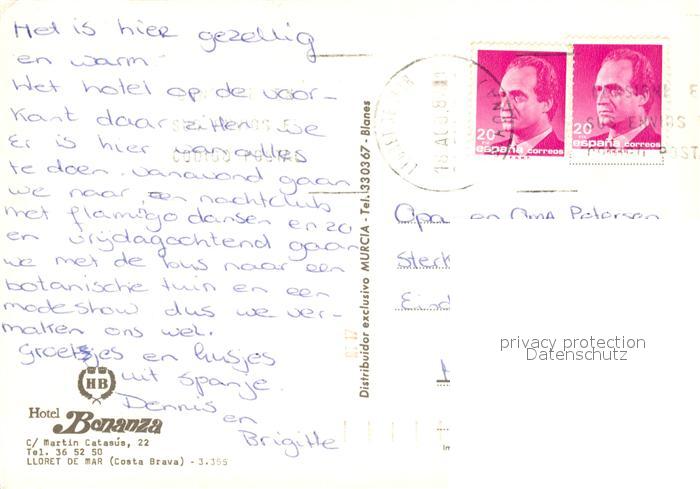 Het is hier gezellig
en warm
Het hotel op de voor-
kant daar zitten we
Er is hier van alles
te doen. vanavond gaan
we naar een nachtclub
met flamigo dansen en zo
en vrijdagochtend gaan
we met de bus naar een
botanische tuin en een
modeshow dus we ver-
maken ons wel.
Groetsjes en kusjes
uit spanje.
Dennis
en
Brigitte
HB
Hotel Bonanza
C/ Martin Catasús, 22
Tel. 36 52 50
LLORET DE MAR (Costa Brava) - 3.355
Distribuidor exclusivo MURCIA - Tel. 330367 - Blanes
20 PTA
españa correos
20 PTA
españa correos
Opa en Oma Petersen
Sterk
Eind
privacy protection
Datenschutz